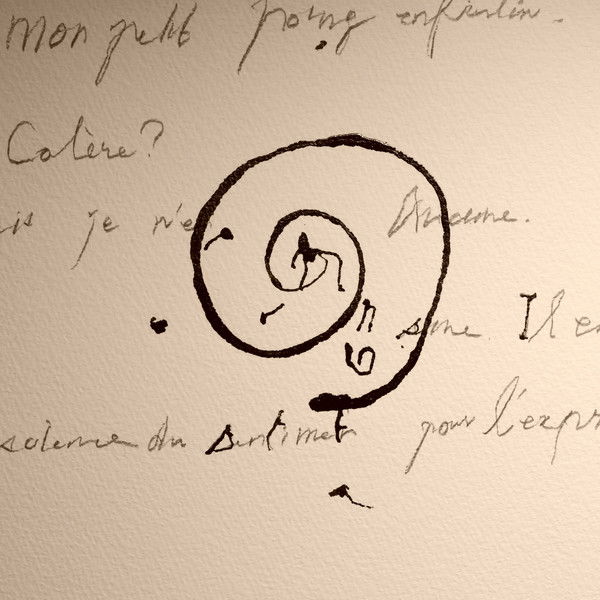 Mon petit poing enfantin.
Colère?
je n'e Aucune.
sme. Il e
du sentiment pour l'expr